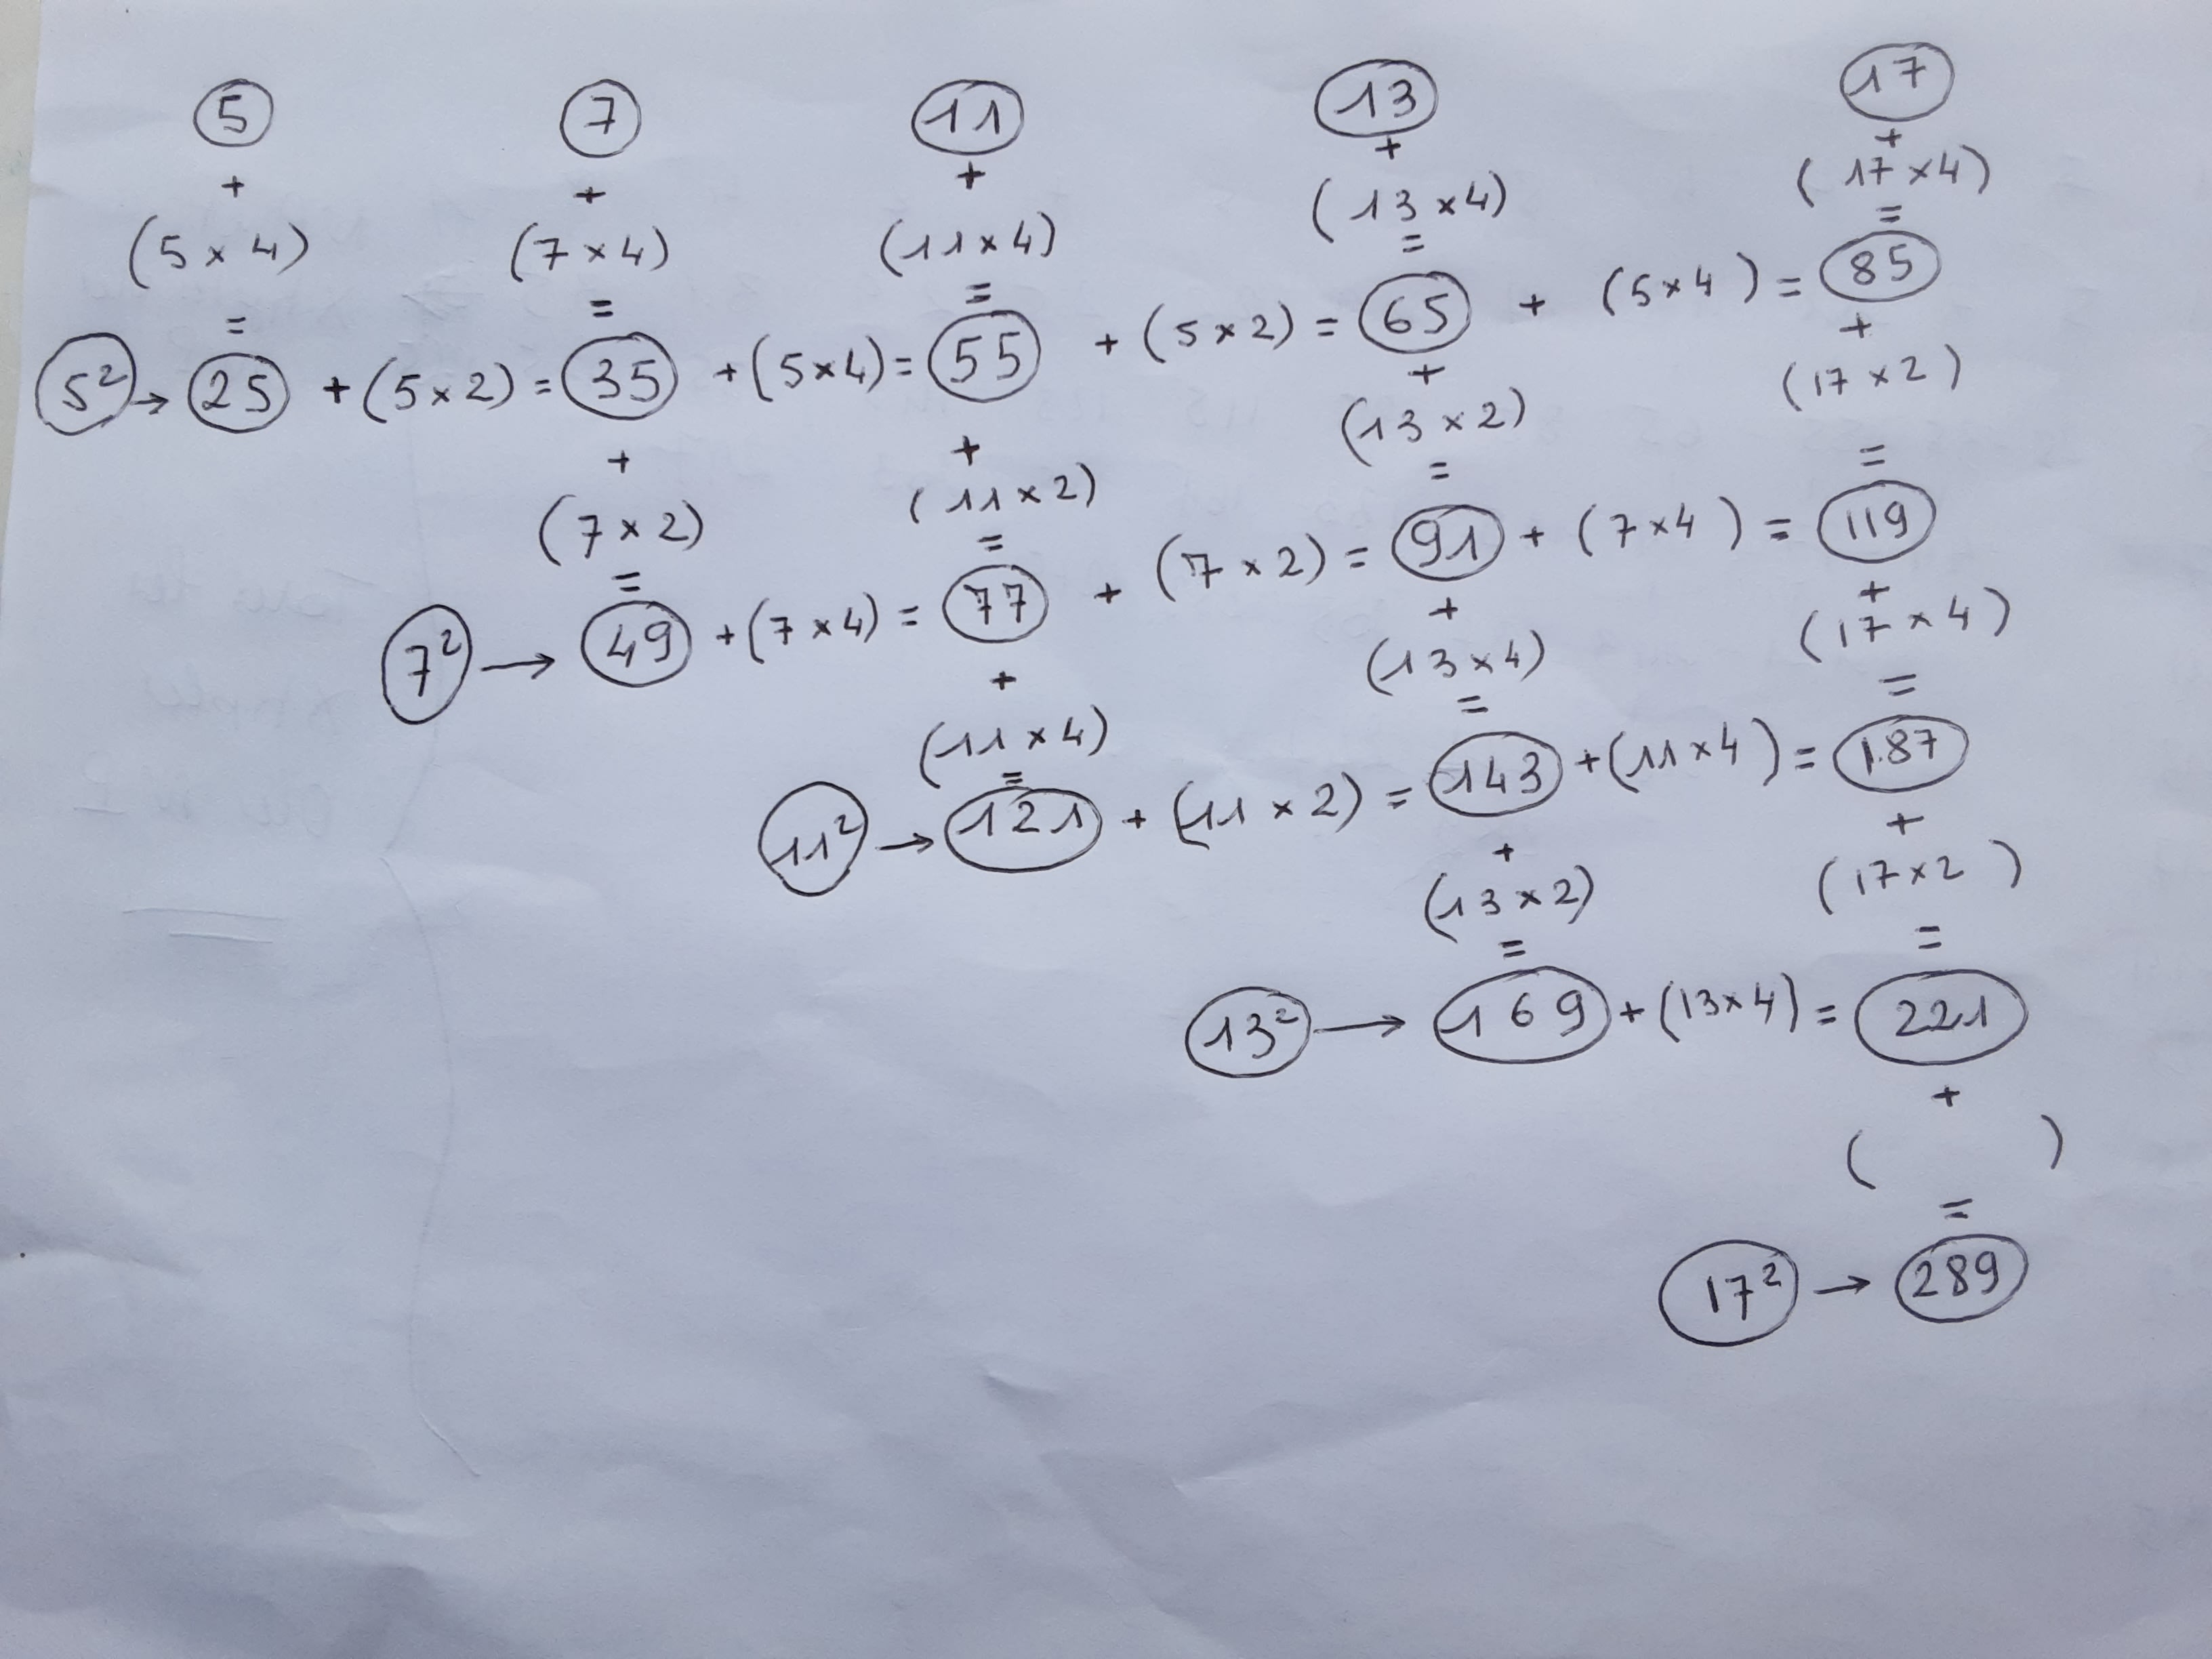 5 7 11 13 17
+ + + + +
(5 x 4) (7 x 4) (11 x 4) (13 x 4) (17 x 4)
= = = = =
5² → 25 + (5 x 2) = 35 + (5 x 4) = 55 + (5 x 2) = 65 + (5 x 4) = 85
+ + + +
(7 x 2) (11 x 2) (13 x 2) (17 x 2)
= = = =
7² → 49 + (7 x 4) = 77 + (7 x 2) = 91 + (7 x 4) = 119
+ + +
(11 x 4) (13 x 4) (17 x 4)
= = =
11² → 121 + (11 x 2) = 143 + (11 x 4) = 187
+ +
(13 x 2) (17 x 2)
= =
13² → 169 + (13 x 4) = 221
+
( )
=
17² → 289